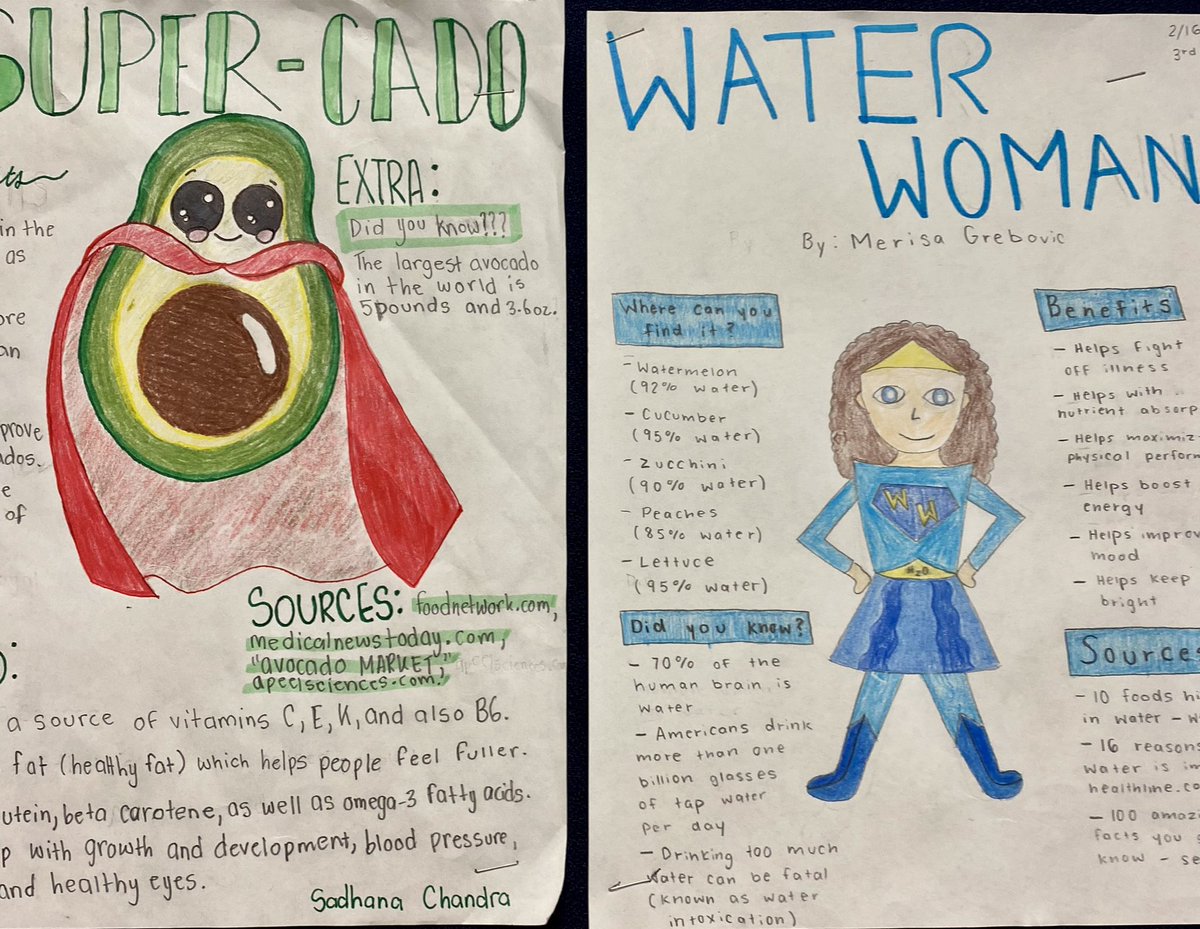 SUPER-CADO
in the
as
an
prove
of
EXTRA:
Did you know???
The largest avocado
in the world is
5pounds and 3.6oz.
SOURCES: foodnetwork.com,
medicalnewstoday.com,
"avocado MARKET,"
apeelsciences.com
a source of vitamins C, E, K, and also B6.
fat (healthy fat) which helps people feel fuller.
utein, beta carotene, as well as omega-3 fatty acids.
p with growth and development, blood pressure,
and healthy eyes.
Sadhana Chandra
WATER
WOMAN
2/16
3rd
By: Merisa Grebovic
Where can you
find it?
- Watermelon
(92% water)
- Cucumber
(95% water)
- Zucchini
(90% water)
- Peaches
(85% water)
- Lettuce
(95% water)
Did you know?
- 70% of the
human brain is
water
- Americans drink
more than one
billion glasses
of tap water
per day
- Drinking too much
water can be fatal
(known as water
intoxication)
W W
H2O
Benefits
- Helps fight
off illness
- Helps with
nutrient absorp
- Helps maximiz
physical perform
- Helps boost
energy
- Helps improv
mood
- Helps keep
bright
Sources
- 10 foods hi
in water - w
- 16 reasons
water is im
healthline.co
- 100 amazi
facts you
know - se